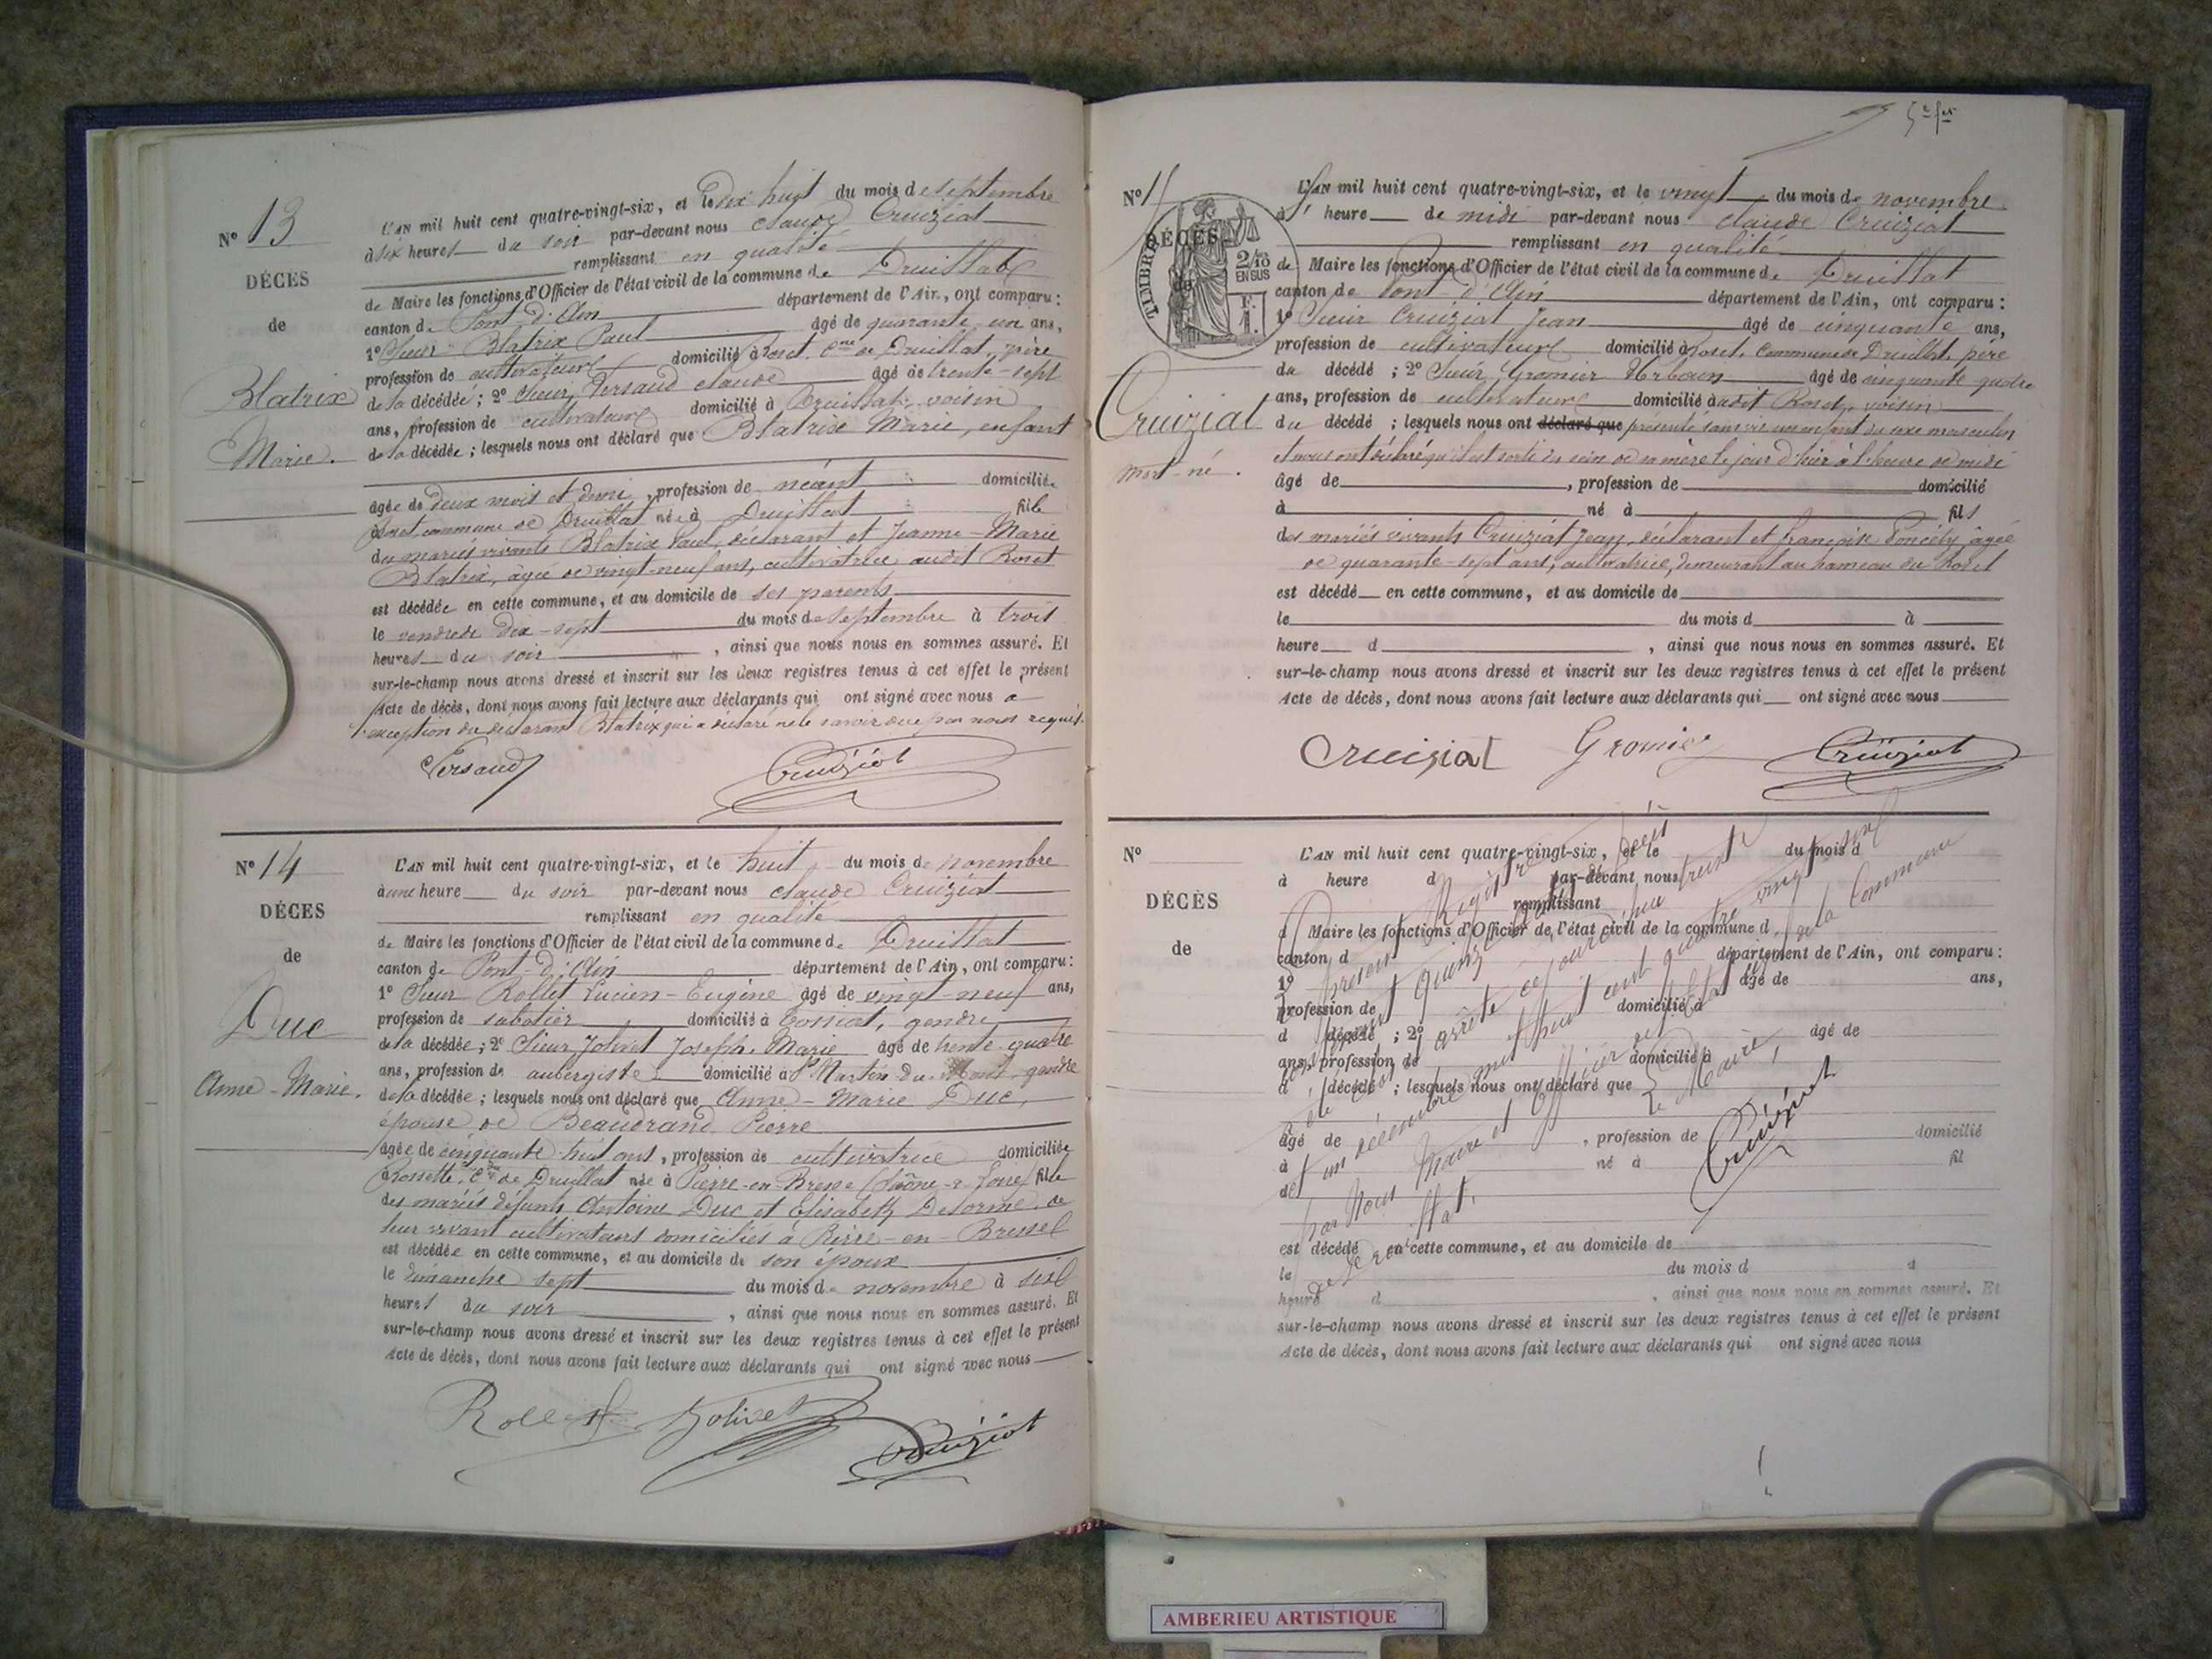 N° 13
DÉCÈS
de
Blatrix
Marie.
L'AN mil huit cent quatre-vingt-six, et le dix huit du mois de septembre
à six heures du soir par-devant nous claude Cruiziat
remplissant en qualité
de Maire les fonctions d'Officier de l'état civil de la commune de Druillat
canton de Pont d'Ain département de l'Ain, ont comparu :
1° Sieur Blatrix Paul âgé de quarante un ans,
profession de cultivateur domicilié à Roset, Cne de Druillat, père
de la décédée ; 2° Sieur Versaud claude âgé de trente-sept
ans, profession de cultivateur domicilié à Druillat, voisin
de la décédée ; lesquels nous ont déclaré que Blatrix Marie, enfant
âgée de deux mois et demi, profession de néant domiciliée
à Roset, commune de Druillat née à Druillat fille
des mariés vivants Blatrix Paul, déclarant et Jeanne-Marie
Blatrix, âgée de vingt-neuf ans, cultivatrice audit Roset
est décédée en cette commune, et au domicile de ses parents
le vendredi dix-sept du mois de septembre à trois
heures du soir, ainsi que nous nous en sommes assuré. Et
sur-le-champ nous avons dressé et inscrit sur les deux registres tenus à cet effet le présent
Acte de décès, dont nous avons fait lecture aux déclarants qui ont signé avec nous a
l'exception du déclarant Blatrix qui a déclaré ne le savoir de ce par nous requis.
Versaud Cruiziat
N° 14
DÉCÈS
de
Duc
Anne-Marie.
L'AN mil huit cent quatre-vingt-six, et le huit du mois de novembre
à une heure du soir par-devant nous claude Cruiziat
remplissant en qualité
de Maire les fonctions d'Officier de l'état civil de la commune de Druillat
canton de Pont-d'Ain département de l'Ain, ont comparu :
1° Sieur Rollet Lucien-Eugène âgé de vingt-neuf ans,
profession de sabotier domicilié à Tossiat, gendre
de la décédée ; 2° Sieur Jolivet Joseph-Marie âgé de trente-quatre
ans, profession de aubergiste domicilié à St Martin-du-Mont, gendre
de la décédée ; lesquels nous ont déclaré que Anne-Marie Duc,
épouse de Beaudrand Pierre
âgée de cinquante-huit ans, profession de cultivatrice domiciliée
à Rossette, Cne de Druillat née à Pierre-en-Bresse (Saône-&-Loire) fille
des mariés défunts Antoine Duc et Elisabeth Delorme, de
leur vivant cultivateurs domiciliés à Pierre-en-Bresse
est décédée en cette commune, et au domicile de son époux
le dimanche sept du mois de novembre à six
heures du soir, ainsi que nous nous en sommes assuré. Et
sur-le-champ nous avons dressé et inscrit sur les deux registres tenus à cet effet le présent
Acte de décès, dont nous avons fait lecture aux déclarants qui ont signé avec nous
Rollet Jolivet Cruiziat
N° 15
DÉCÈS
de
TIMBRE
2/10 EN SUS
F. 1.
Cruiziat
mort-né.
L'AN mil huit cent quatre-vingt-six, et le vingt du mois de novembre
à 1 heure de midi par-devant nous claude Cruiziat
remplissant en qualité
de Maire les fonctions d'Officier de l'état civil de la commune de Druillat
canton de Pont d'Ain département de l'Ain, ont comparu :
1° Sieur Cruiziat Jean âgé de cinquante ans,
profession de cultivateur domicilié à Roset, Commune de Druillat, père
du décédé ; 2° Sieur Gromier Urbain âgé de cinquante quatre
ans, profession de cultivateur domicilié audit Roset, voisin
du décédé ; lesquels nous ont déclaré que présenté sans vie un enfant du sexe masculin
et nous ont déclaré qu'il est sorti du sein de sa mère le jour d'hier à l'heure de midi
âgé de , profession de domicilié
à né à fils
des mariés vivants Cruiziat Jean, déclarant et françoise Poncety, âgée
de quarante-sept ans, cultivatrice, demeurant au hameau du Roset
est décédé en cette commune, et au domicile de
le du mois d à
heure d , ainsi que nous nous en sommes assuré. Et
sur-le-champ nous avons dressé et inscrit sur les deux registres tenus à cet effet le présent
Acte de décès, dont nous avons fait lecture aux déclarants qui ont signé avec nous
Cruiziat Gromier Cruiziat
N°
DÉCÈS
de
L'AN mil huit cent quatre-vingt-six, et le du mois d
à heure d par-devant nous
remplissant
d Maire les fonctions d'Officier de l'état civil de la commune d
canton d département de l'Ain, ont comparu :
1° âgé de ans,
profession de domicilié à
d décédé ; 2° âgé de
ans, profession de domicilié à
d décédé ; lesquels nous ont déclaré que
âgé de , profession de domicilié
à né à fil
de
est décédé en cette commune, et au domicile de
le du mois d à
heure d , ainsi que nous nous en sommes assuré. Et
sur-le-champ nous avons dressé et inscrit sur les deux registres tenus à cet effet le présent
Acte de décès, dont nous avons fait lecture aux déclarants qui ont signé avec nous
présent Registre de décès
quinze
arrêté ce jourd'hui trente
et un décembre mil huit cent quatre vingt six
par Nous Maire et Officier de l'état civil de la Commune
de Druillat.
Le Maire,
Cruiziat
AMBERIEU ARTISTIQUE